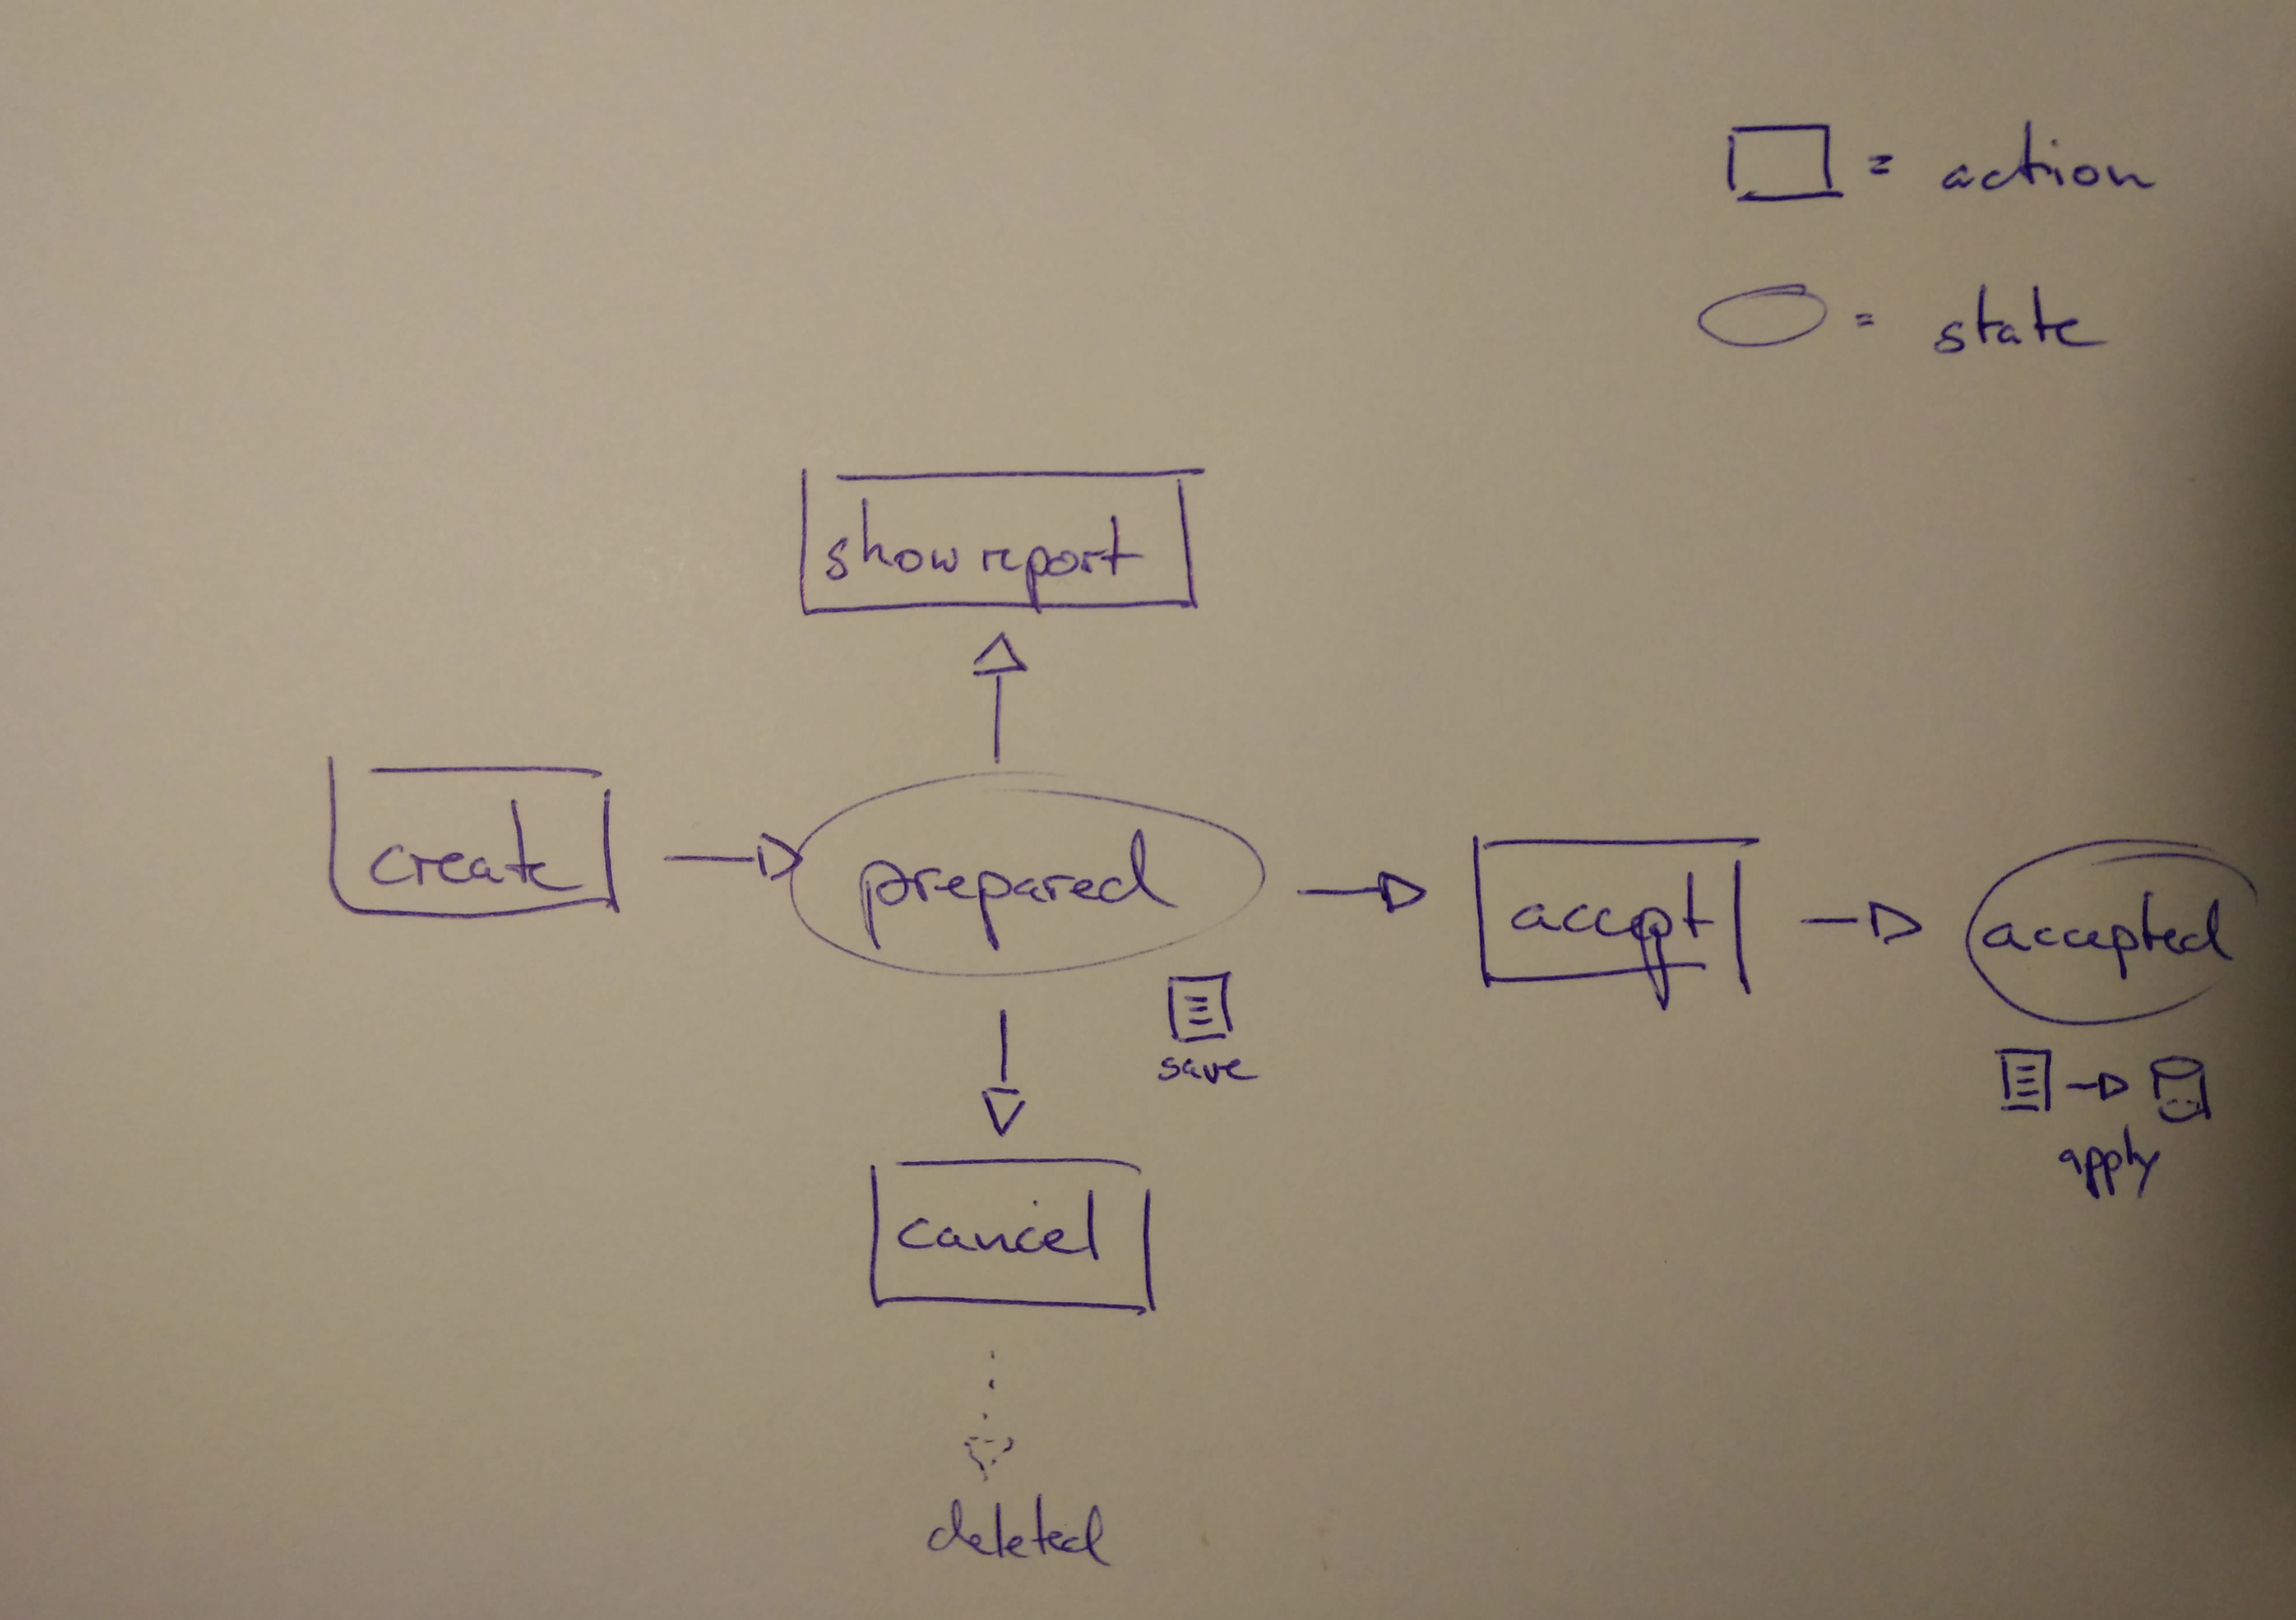 = action
= state
show report
create
prepared
accept
accepted
save
apply
cancel
deleted